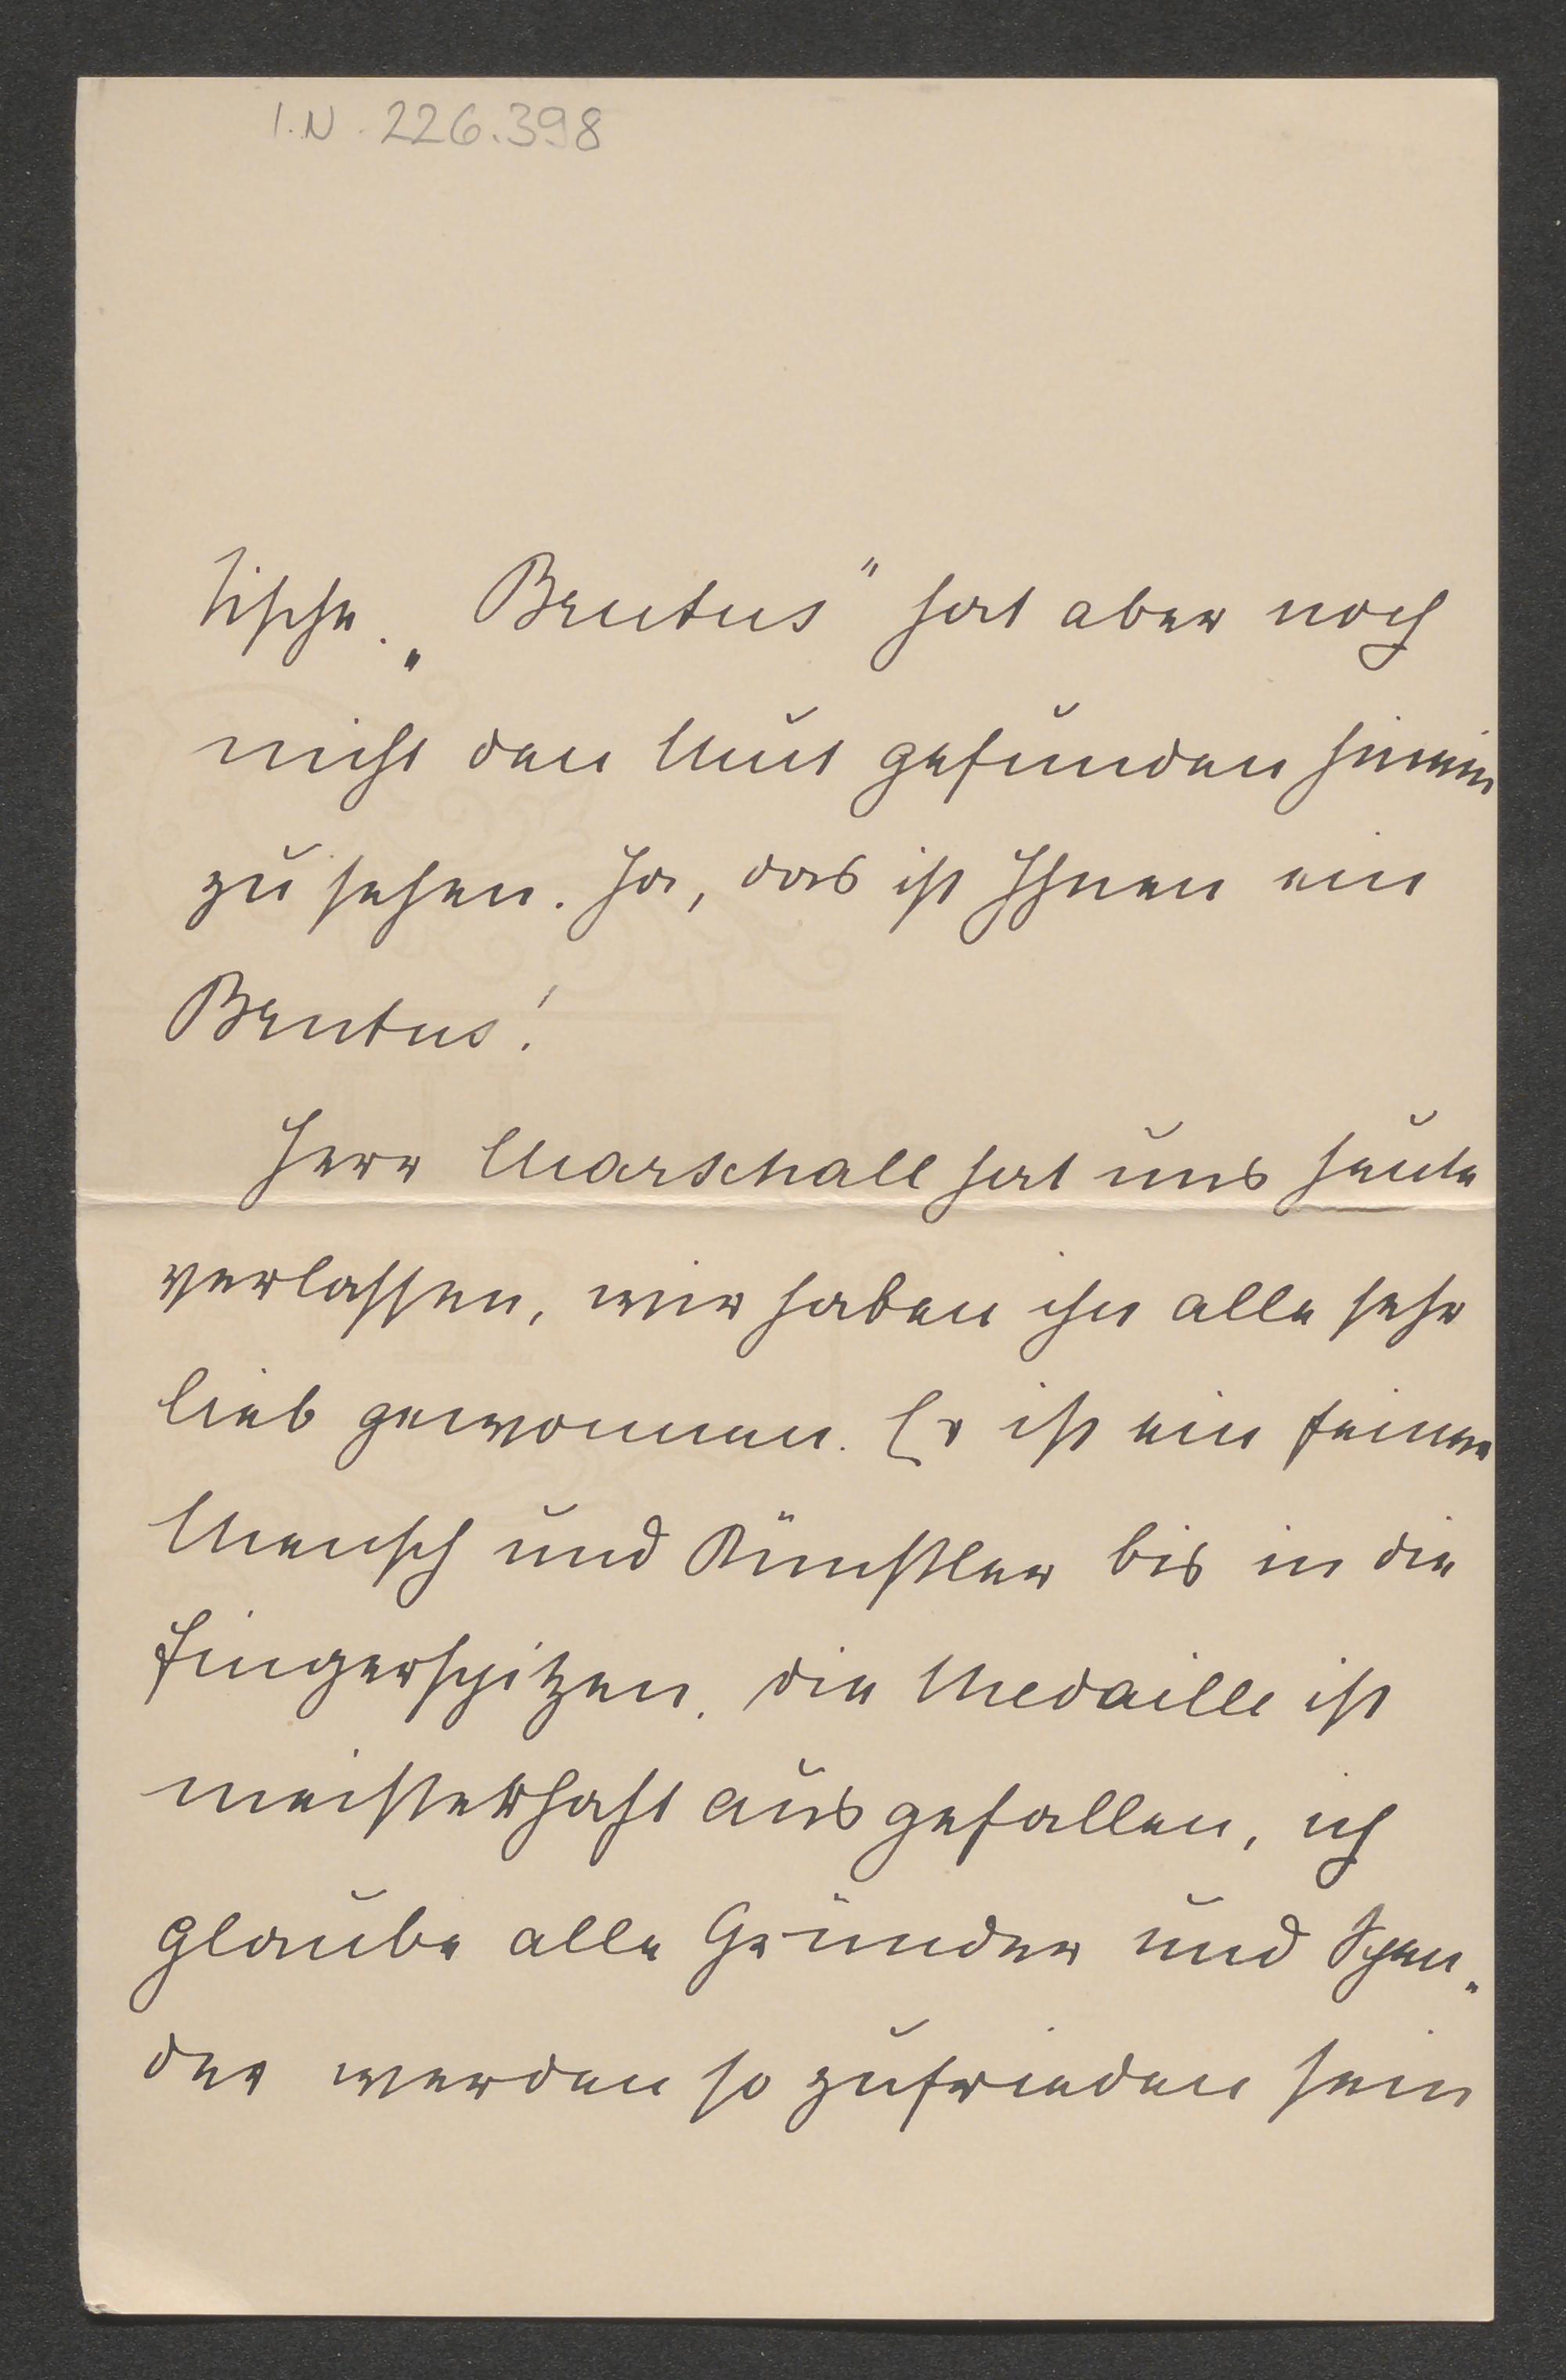 I.N. 226.398
tische. „Brutus" hat aber noch
nicht den Mut gefunden hinein
zu sehen. Ja, das ist Ihnen ein
Brutus!
Herr Marschall hat uns heute
verlassen, wir haben ihn alle sehr
lieb gewonnen. Er ist ein feiner
Mensch und Künstler bis in die
Fingerspitzen. die Medaille ist
meisterhaft ausgefallen, ich
glaube alle Gründer und Spen„
der werden so zufrieden sein